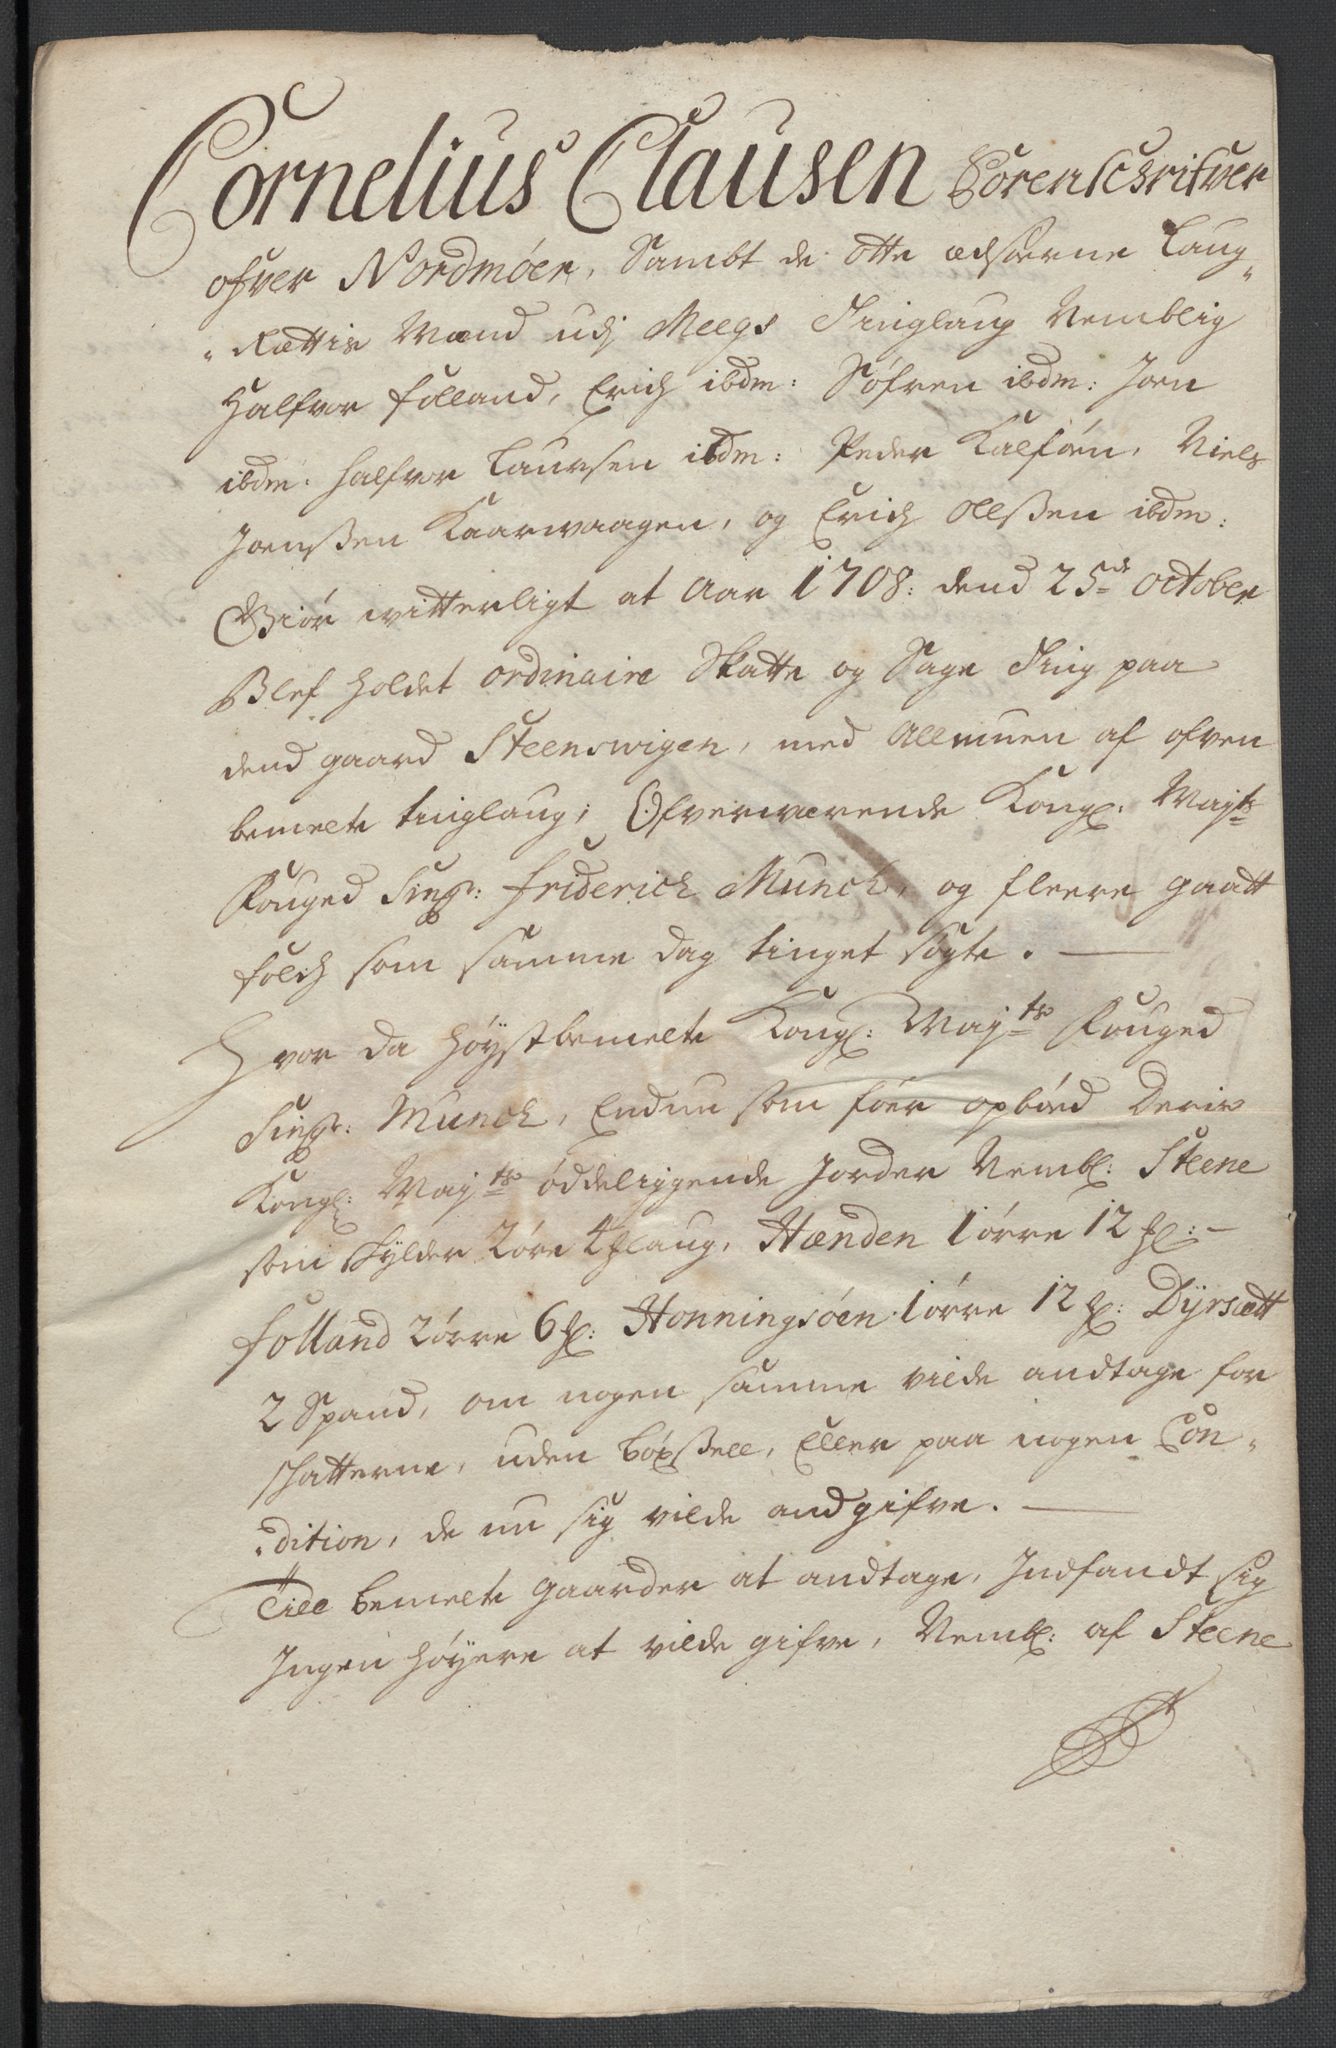 Cornelius Clausen Sorenschrifver
ofver Nordmøer, Sambt de otte ædsorne Laug„
„Rættis Mænd udj Meegs Tinglaug Nemblig
Halfvor Folland, Erich ibdm: Søfren ibdm: Joen
ibdm: Halfvor Laursen ibdm: Peder Kalføen, Niels
Joensßen Kaarwaagen, og Erich Olsßen ibdm:
Giør witterligt at Aar 1708: dend 25de October
Blef holdet ordinaire Skatte og Sage Ting paa
dend gaard Steenswigen, med Allmuen af ofven
bemelte tinglaug; Ofverværende Kongl: Mayts
Fouged Sinr: Friderich Munch, og fleere gaatt
folch som samme dag tinget søgte. —
Hvor da høystbemelte Kongl: Mayts Fouged
Sinr: Munch, Endnu som føer opbød Deris
Kongl: Mayts øddeliggende Jorder Nembl: Steene
som skylder 2 øre 4 laug, Hænden 1 ørre 12 : —
Folland 2 ørre 6 : Honningsøen 1 ørre 12 : Dyrsætt
2 Spand, om nogen samme vilde andtage for
schatterne, uden böxßell, Eller paa nogen Con„
„dition, de nu sig vilde andgifve. —
Till bemelte gaarder at andtage, Indfandt sig
Ingen høyere at vilde gifve, Nembl: af Steene